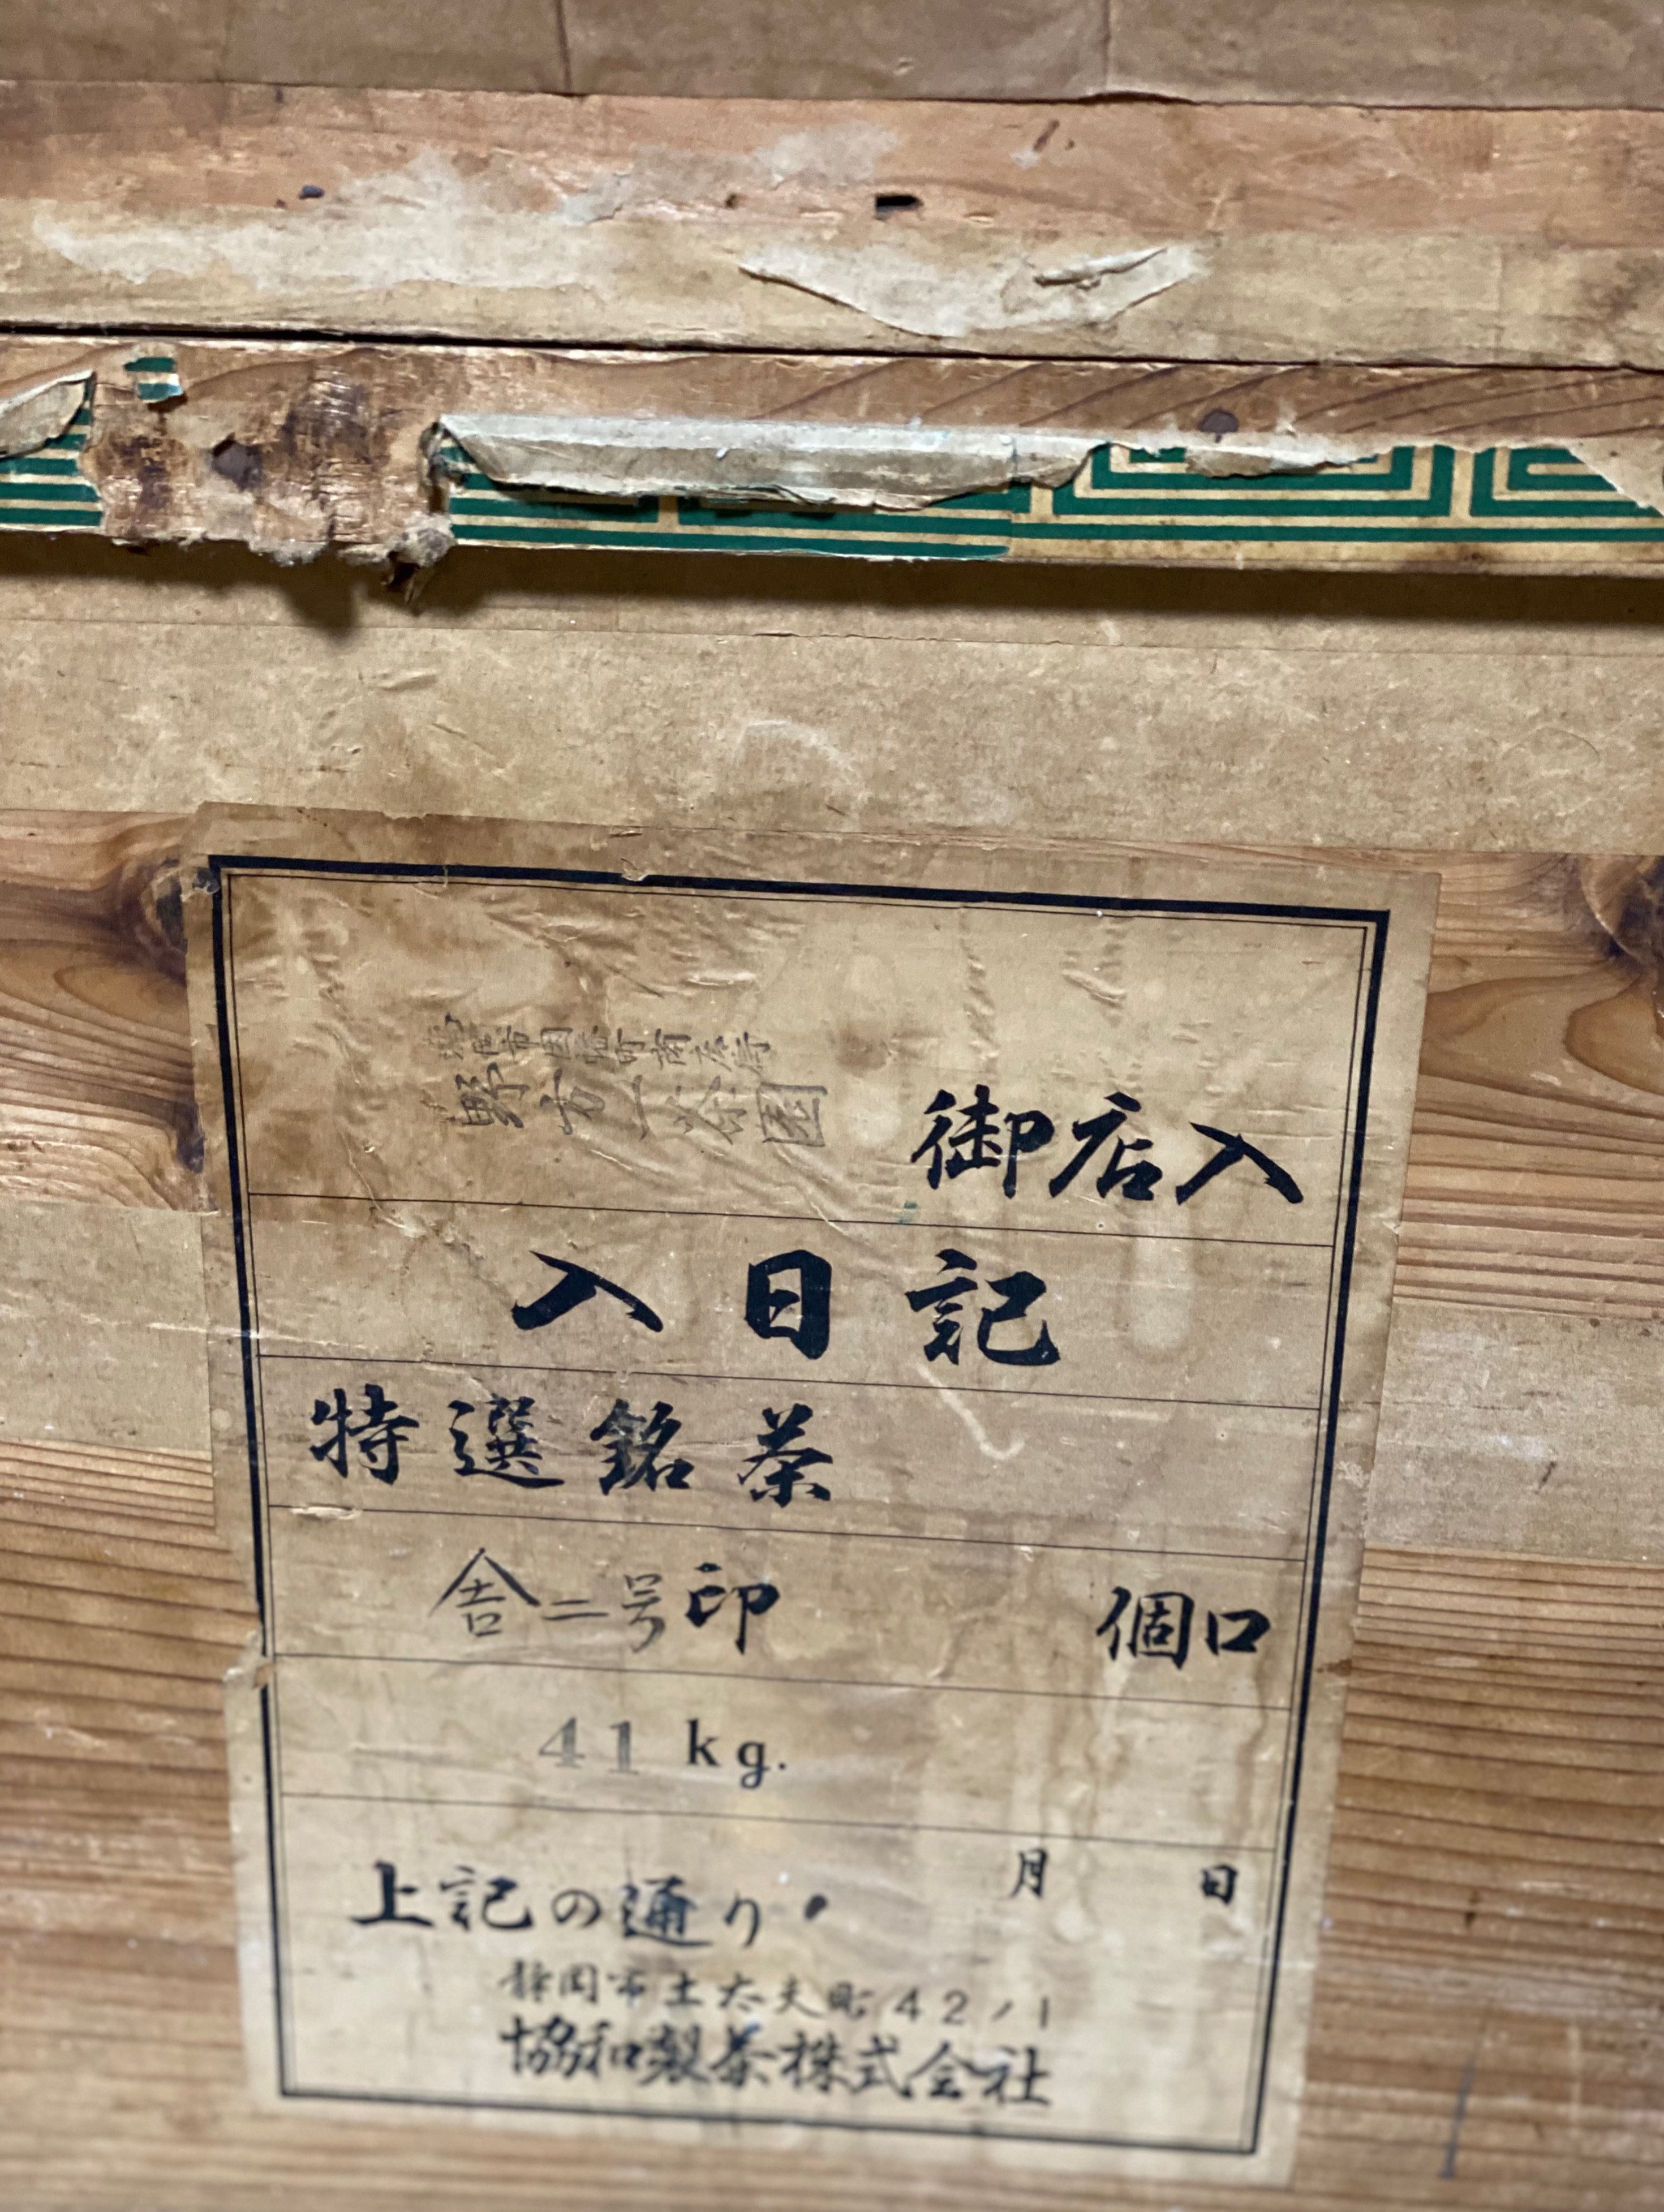 野方一茶園
御店入
入日記
特選銘茶
二号印 個口
41 kg.
月 日
上記の通り
静岡市土太夫町42ノ1
協和製茶株式会社